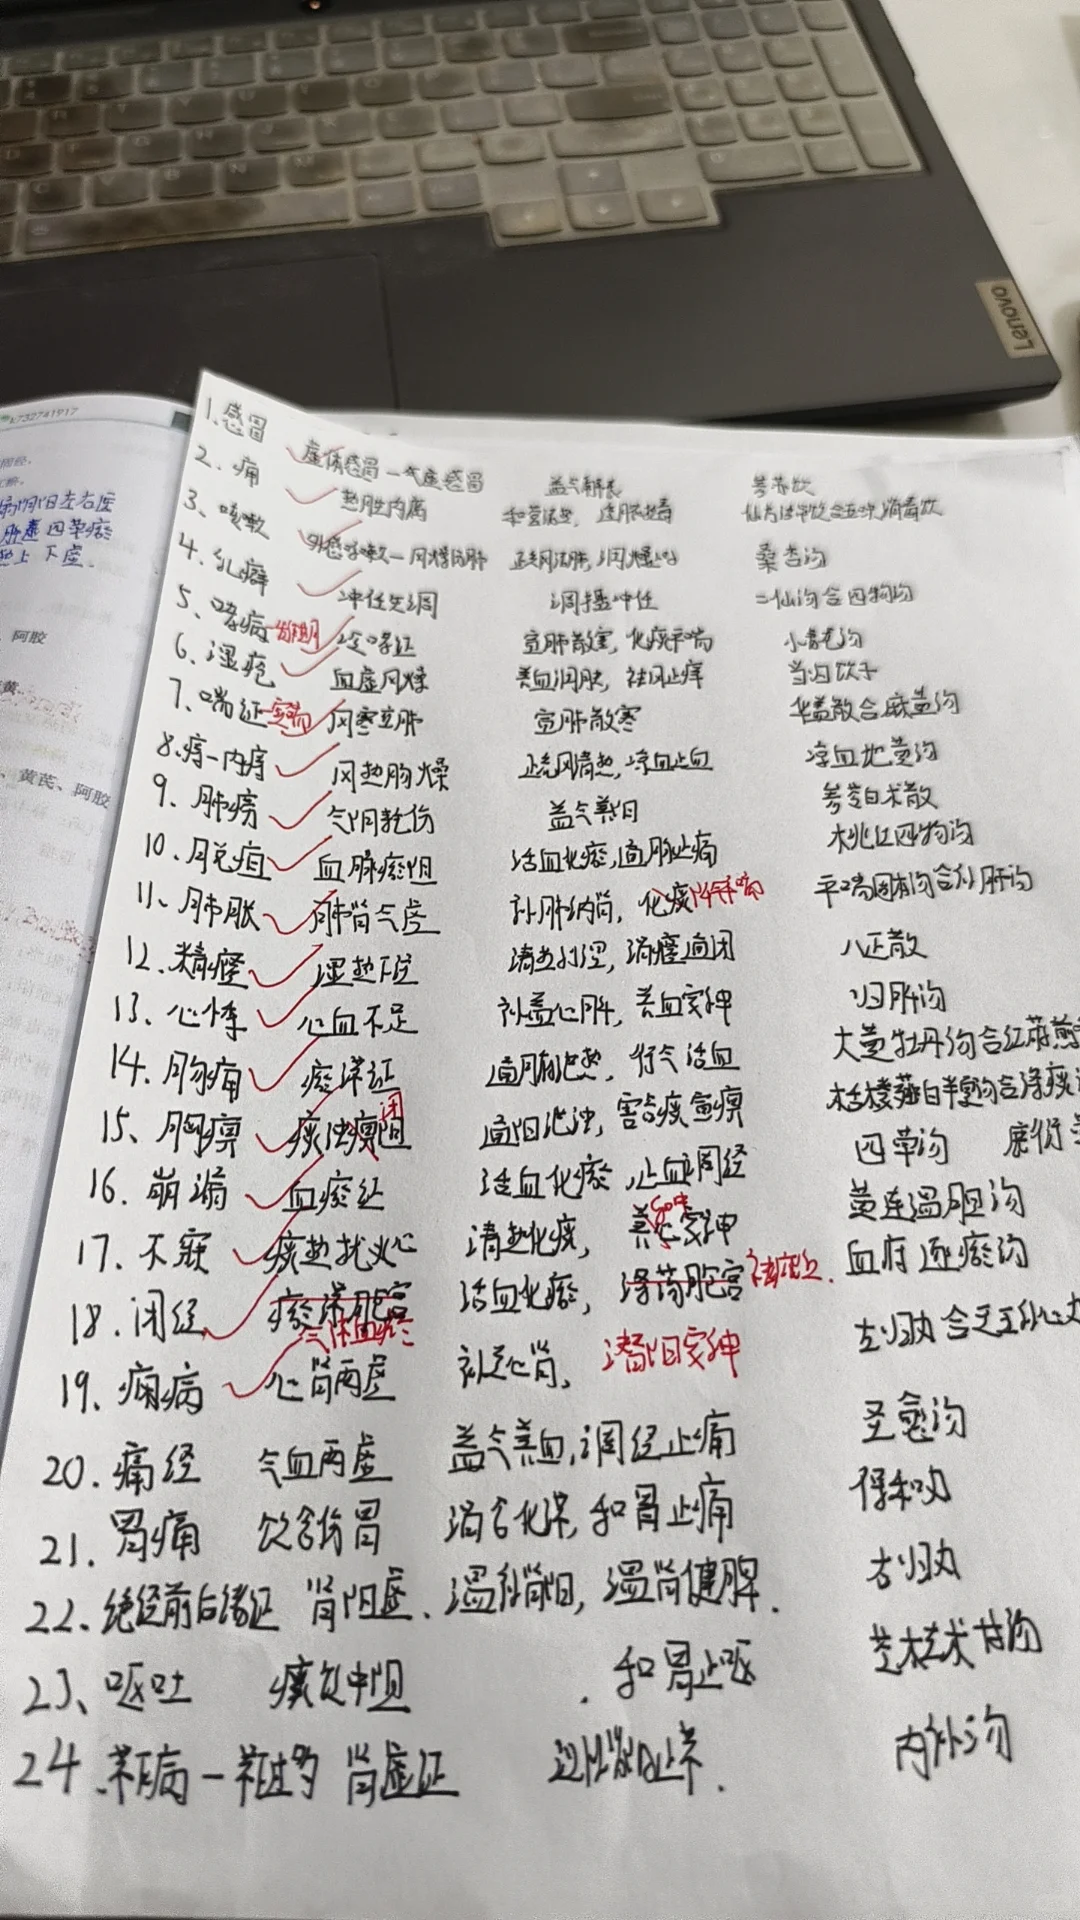 Lenovo
k732741917
阿胶
黄芪、阿胶
1.感冒 虚体感冒—气虚感冒 益气解表 参苏饮
2.痈 热胜肉腐 和营 透脓 仙方活命饮合五味消毒饮
3、咳嗽 外感咳嗽—风燥伤肺 疏风清肺,润燥止咳 桑杏汤
4.乳癖 冲任失调 调摄冲任 二仙汤合四物汤
5、哮病—发作期 冷哮证 宣肺散寒,化痰平喘 小青龙汤
6、湿疮 血虚风燥 养血润肤,祛风止痒 当归饮子
7、喘证—实喘 风寒壅肺 宣肺散寒 华盖散合麻黄汤
8.痔—内痔 风热肠燥 疏风清热,凉血止血 凉血地黄汤
9、肺痨 气阴耗伤 益气养阴 参苓白术散
10、脱疽 血脉瘀阻 活血化瘀,通脉止痛 桃红四物汤
11、肺胀 肺肾气虚 补肺纳肾,化痰降气平喘 平喘固本汤合补肺汤
12、精癃 湿热下注 清热利湿,消癃通闭 八正散
13、心悸 心血不足 补益心脾,养血安神 归脾汤
14、胸痛 瘀滞证 通腑泄热,行气活血 大黄牡丹汤合红藤煎
15、胸痹 痰浊痹阻 闭 通阳泄浊,豁痰宣痹 栝楼薤白半夏汤合涤痰
16.崩漏 血瘀证 活血化瘀,止血调经 四草汤
17、不寐 痰热扰心 清热化痰,安神 和中 黄连温胆汤
18.闭经 瘀滞胞宫 气滞血瘀 活血化瘀,涤荡胞宫 血府逐瘀汤
19、痫病 心肾两虚 补益心肾,潜阳安神 左归丸合天王补心丸
20.痛经 气血两虚 益气养血,调经止痛 圣愈汤
21.胃痛 饮食伤胃 消食化滞,和胃止痛 保和丸
22、绝经前后诸证 肾阳虚、温补肾阳,温肾健脾. 右归丸
23、呕吐 痰饮中阻 . 和胃止呕
24.带下病—带下过多 肾虚证 内补汤